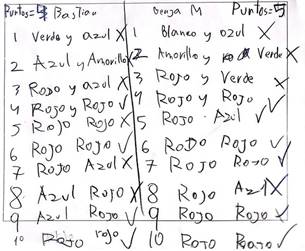 Puntos=5 Bastian
1 Verde y azul X
2 Azul y Amarillo X
3 Rojo y azul X
4 Rojo y Rojo ✓
5 Rojo Rojo X
6 Rojo Rojo ✓
7 Rojo Azul X
8 Azul Rojo X
9 Azul Rojo ✓
10 Rojo rojo ✓
Benja M Puntos=5
1 Blanco y azul X
2 Amarillo y Verde X
3 Rojo y Verde X
4 Rojo y Rojo ✓
5 Rojo Azul ✓
6 Rojo Rojo ✓
7 Rojo Rojo ✓
8 Rojo Azul X
9 Rojo Rojo X
10 Rojo Rojo ✓